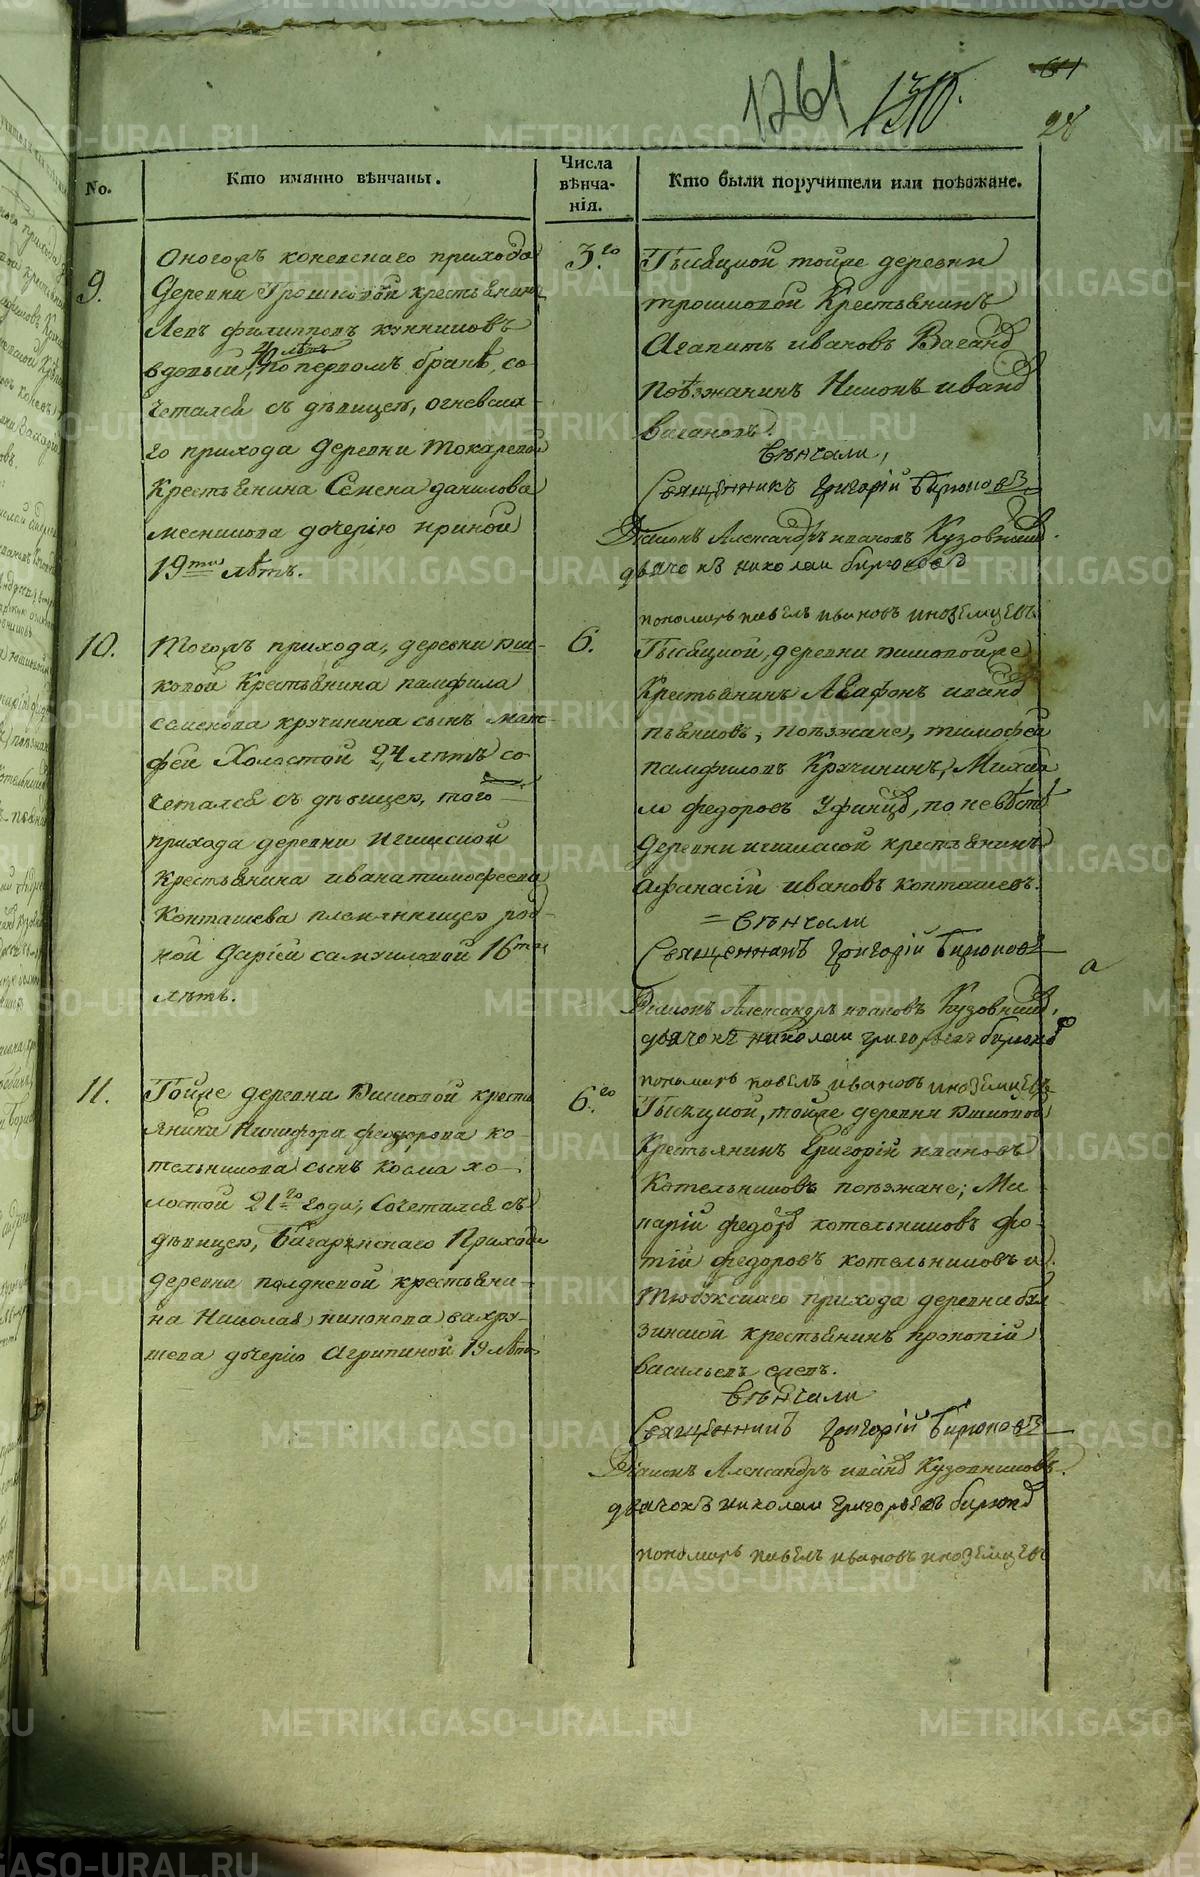 1261 1310.
61
28
No.
Кто имянно вѣнчаны.
Числа
вѣнча-
нія.
Кто были поручители или поѣзжане.
9.
Оногожъ коневскаго прихода
деревни Трошковой крестьянинъ
Левъ филипповъ
40 лѣтъ
вдовый, по первомъ бракѣ, со-
четался съ дѣвицею, огневска-
го прихода деревни токаревой
Крестьянина Семена данилова
дочерію ириной
19ти лѣтъ.
3.го
Тысяцкой тойже деревни
трошковой Крестьянинъ
Агапитъ ивановъ Ваганов
Поѣзжанинъ Никонъ иванов
вагановъ.
Вѣнчали,
Священникъ Григорій Бирюковъ
Діаконъ Александръ ивановъ Кузовников.
дьячокъ николаи бирюков
пономарь павелъ ивановъ иноземцевъ
10.
Тогожъ прихода, деревни Шиш-
ковой Крестьянина памфила
семенова кручинина сынъ мат-
фей Холостой 24 лѣтъ со-
четался съ дѣвицею, того
прихода деревни
Крестьянина ивана тимофеева
Конташева племянницею род-
ной Даріей самуиловой 16ти
лѣтъ.
6.
Тысяцкой, деревни
Крестьянинъ Агафонъ иванов
пьянковъ, поѣзжане, тимофей
памфиловъ Кручининъ, Михаи-
ло федоровъ Уфинцов, по невѣстѣ
деревни крестьянинъ
афанасій ивановъ конташевъ.
= вѣнчали
Священникъ Григорій Бирюковъ
а
Діаконъ Александръ ивановъ Кузовников,
дьячокъ николаи григорьевъ бирюков
пономарь павелъ ивановъ иноземцевъ
11.
Тойже деревни крестья-
янина Никифора федорова ко-
тельникова сынъ косма хо-
лостой 21го года, Сочетался съ
дѣвицею, Багарякскаго Прихода
деревни полдневой крестьяни-
на Николая никонова вахру-
шева дочерію Агрипиной 19 лѣтъ
6.го
Тысяцкой, тойже деревни
Крестьянинъ Григорій ивановъ
Котельниковъ поѣзжане; Ма-
карій федоров котельниковъ фо-
тій федоровъ котельниковъ и
Тюбукскаго прихода деревни бул-
зинской крестьянинъ прокопій
васильевъ
вѣнчали
Священникъ Григорій Бирюковъ
Діаконъ Александръ иванов Кузовниковъ.
дьячокъ николаи григорьевъ бирюков
пономарь павелъ ивановъ иноземцевъ
METRIKI.GASO-URAL.RU